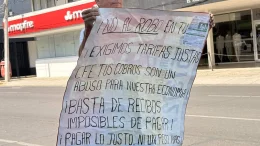 mapfre
¡¡NO AL ROBO EN
EXIGIMOS TARIFAS JUSTAS
CFE TUS COBROS SON UN
ABUSO PARA NUESTRA ECONOMIA
¡BASTA DE RECIBOS
IMPOSIBLES DE PAGAR!
PAGAR LO JUSTO, NI UN PESO MAS